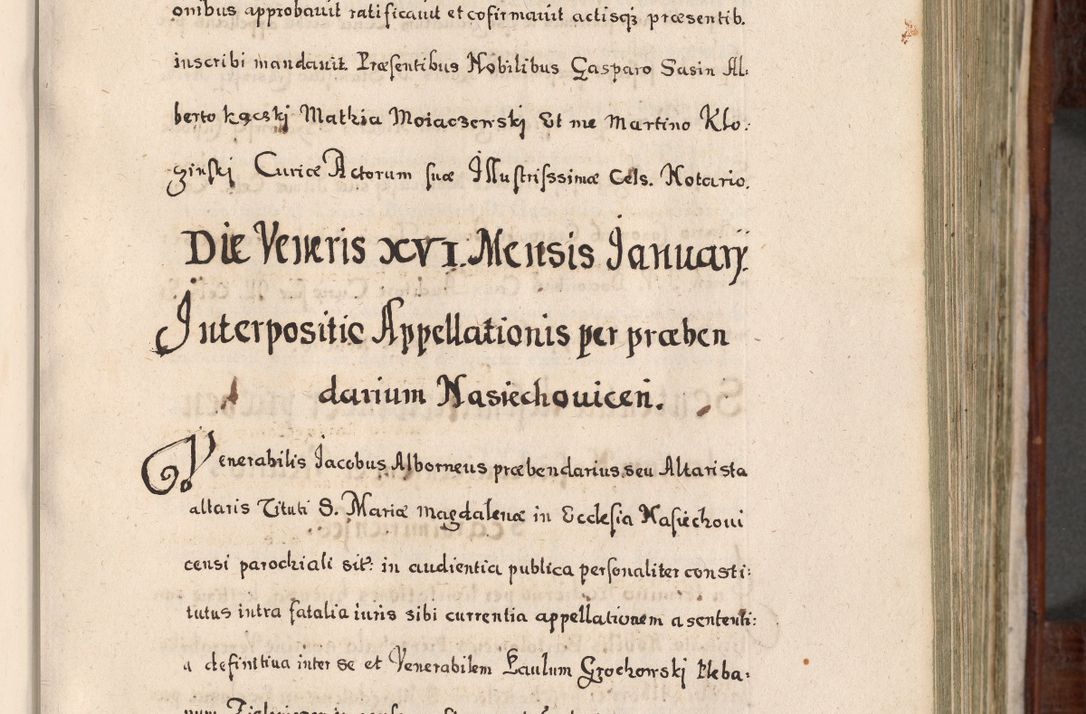 onibus approbauit ratificauit et cofirmauit actisq3 præsentib.
inscribi mandauit. Præsentibus Nobilibus Gasparo Sasin Al:
berto Kącski Mathia Moiaczewski Et me Martino Kło:
ginski Curiæ Actorum suæ Illustrissimæ Cels. Notario.
Die Veneris XVI. Mensis Ianuarÿ.
Interpositio Appellationis per præben
darium Nasiechouicen.
Venerabilis Iacobus Alborneus præbendarius seu Altarista
altaris Tituli S. Mariæ Magdalenæ in Ecclesia Nasiechoui
censi parochiali sit: in audientia publica personaliter consti:
tutus intra fatalia iuris sibi currentia appellationem a sententi:
a definitiua inter se et Venerabilem Paulum Grochowski Pleba:
num